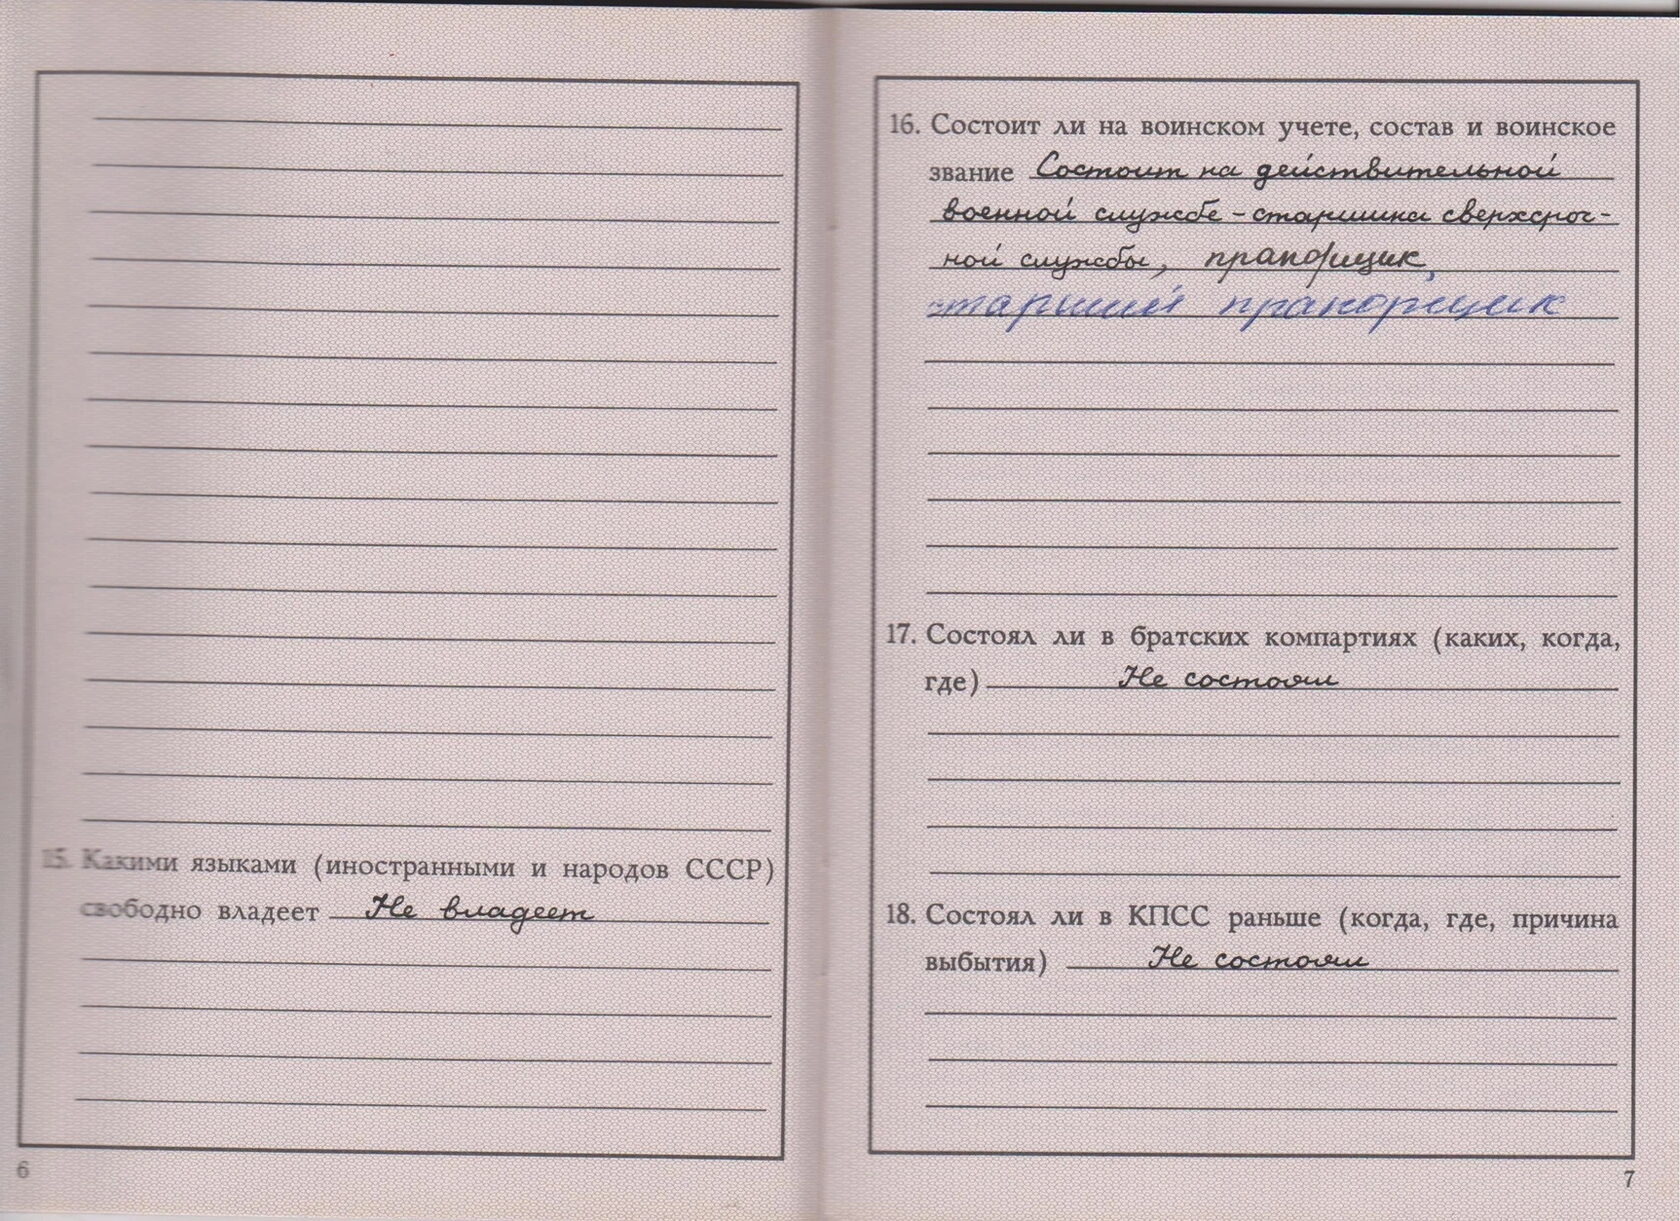 15. Какими языками (иностранными и народов СССР)
свободно владеет Не владеет
6
16. Состоит ли на воинском учете, состав и воинское
звание Состоит на действительной
военной службе - старшина сверхсроч-
ной службы, прапорщик,
старший прапорщик
17. Состоял ли в братских компартиях (каких, когда,
где) Не состоял
18. Состоял ли в КПСС раньше (когда, где, причина
выбытия) Не состоял
7